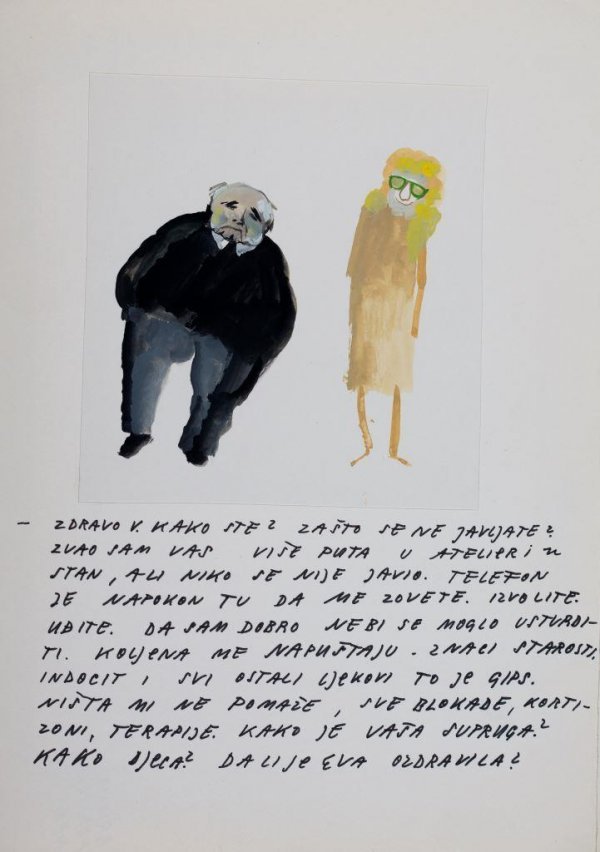 – ZDRAVO V. KAKO STE? ZAŠTO SE NE JAVLJATE?
ZVAO SAM VAS VIŠE PUTA U ATELJER I U
STAN, ALI NIKO SE NIJE JAVIO. TELEFON
JE NAPOKON TU DA ME ZOVETE. IZVOLITE.
UĐITE. DA SAM DOBRO NEBI SE MOGLO USTVRDI-
TI. KOLJENA ME NAPUŠTAJU. ZNACI STAROSTI.
INDOCIT I SVI OSTALI LJEKOVI TO JE GIPS.
NIŠTA MI NE POMAŽE, SVE BLOKADE, KORTI-
ZONI, TERAPIJE. KAKO JE VAŠA SUPRUGA?
KAKO DJECA? DA LI JE EVA OZDRAVILA?